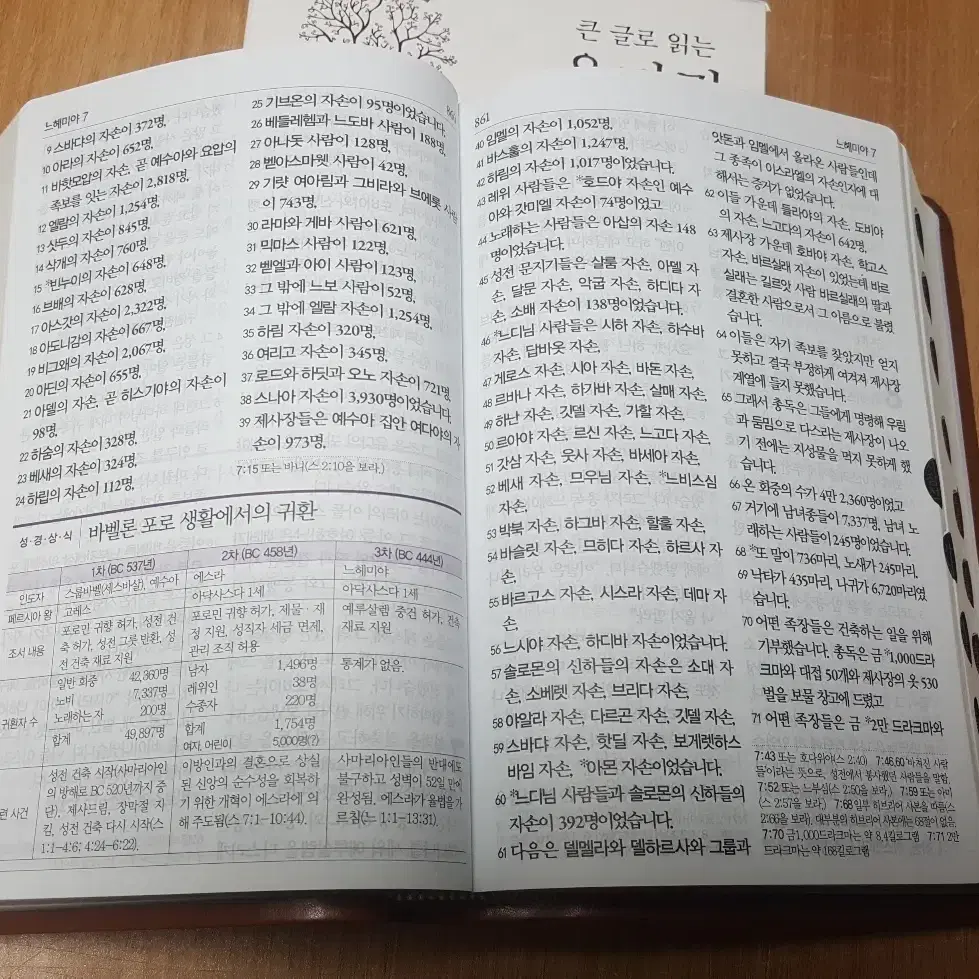 큰 글로 읽는
느헤미야 7
9 스바댜의 자손이 372명,
10 아라의 자손이 652명,
11 바핫모압의 자손, 곧 예수아와 요압의
족보를 잇는 자손이 2,818명,
12 엘람의 자손이 1,254명,
13 삿두의 자손이 845명,
14 삭개의 자손이 760명,
15 *빈누이의 자손이 648명,
16 브배의 자손이 628명,
17 아스갓의 자손이 2,322명,
18 아도니감의 자손이 667명,
19 비그왜의 자손이 2,067명,
20 아딘의 자손이 655명,
21 아델의 자손, 곧 히스기야의 자손이
98명,
22 하숨의 자손이 328명,
23 베새의 자손이 324명,
24 하립의 자손이 112명,
25 기브온의 자손이 95명이었습니다.
26 베들레헴과 느도바 사람이 188명,
27 아나돗 사람이 128명,
28 벧아스마웻 사람이 42명,
29 기럇 여아림과 그비라와 브에롯 사람
이 743명,
30 라마와 게바 사람이 621명,
31 믹마스 사람이 122명,
32 벧엘과 아이 사람이 123명,
33 그 밖에 느보 사람이 52명,
34 그 밖에 엘람 자손이 1,254명,
35 하림 자손이 320명,
36 여리고 자손이 345명,
37 로드와 하딧과 오노 자손이 721명,
38 스나아 자손이 3,930명이었습니다.
39 제사장들은 예수아 집안 여다야의 자
손이 973명,
7:15 또는 바니(스 2:10을 보라.)
성·경·상·식 바벨론 포로 생활에서의 귀환
1차 (BC 537년) 2차 (BC 458년) 3차 (BC 444년)
인도자 스룹바벨(세스바살), 예수아 에스라 느헤미야
페르시아 왕 고레스 아닥사스다 1세 아닥사스다 1세
조서 내용 포로민 귀향 허가, 성전 건
축 허가, 성전 그릇 반환, 성
전 건축 재료 지원
포로민 귀향 허가, 제물·재
정 지원, 성직자 세금 면제,
관리 조직 허용
예루살렘 중건 허가, 건축
재료 지원
귀환자 수
일반 회중 42,360명
노비 7,337명
노래하는 자 200명
합계 49,897명
남자 1,496명
레위인 38명
수종자 220명
합계 1,754명
여자, 어린이 5,000명(?)
통계가 없음.
련 사건
성전 건축 시작(사마리아인
의 방해로 BC 520년까지 중
단). 제사드림, 장막절 지
킴, 성전 건축 다시 시작(스
1:1-4:6; 4:24-6:22).
이방인과의 결혼으로 상실
된 신앙의 순수성을 회복하
기 위한 개혁이 에스라에 의
해 주도됨(스 7:1-10:44).
사마리아인들의 반대에도
불구하고 성벽이 52일 만에
완성됨. 에스라가 율법을 가
르침(느 1:1-13:31).
861
40 임멜의 자손이 1,052명,
41 바스훌의 자손이 1,247명,
42 하림의 자손이 1,017명이었습니다.
43 레위 사람들은 *호드야 자손인 예수
아와 갓미엘 자손이 74명이었고
44 노래하는 사람들은 아삽의 자손 148
명이었습니다.
45 성전 문지기들은 살룸 자손, 아델 자
손, 달문 자손, 악굽 자손, 하디다 자
손, 소배 자손이 138명이었습니다.
46 *느디님 사람들은 시하 자손, 하수바
자손, 답바옷 자손,
47 게로스 자손, 시아 자손, 바돈 자손,
48 르바나 자손, 하가바 자손, 살매 자손,
49 하난 자손, 깃델 자손, 가할 자손,
50 르아야 자손, 르신 자손, 느고다 자손,
51 갓삼 자손, 웃사 자손, 바세아 자손,
52 베새 자손, 므우님 자손, *느비스심
자손,
53 박북 자손, 하그바 자손, 할훌 자손,
54 바슬릿 자손, 므히다 자손, 하르사 자
손,
55 바르고스 자손, 시스라 자손, 데마 자
손,
56 느시야 자손, 하디바 자손이었습니다.
57 솔로몬의 신하들의 자손은 소대 자
손, 소베렛 자손, 브리다 자손,
58 야알라 자손, 다르곤 자손, 깃델 자손,
59 스바댜 자손, 핫딜 자손, 보게렛하스
바임 자손, *아몬 자손이었습니다.
60 *느디님 사람들과 솔로몬의 신하들의
자손이 392명이었습니다.
61 다음은 델멜라와 델하르사와 그룹과
느헤미야 7
앗돈과 임멜에서 올라온 사람들인데
그 종족이 이스라엘의 자손인지에 대
해서는 증거가 없었습니다.
62 이들 가운데 들라야의 자손, 도비야
의 자손, 느고다의 자손이 642명,
63 제사장 가운데 호바야 자손, 학고스
자손, 바르실래 자손이 있었는데 바르
실래는 길르앗 사람 바르실래의 딸과
결혼한 사람으로서 그 이름으로 불렸
습니다.
64 이들은 자기 족보를 찾았지만 얻지
못하고 결국 부정하게 여겨져 제사장
계열에 들지 못했습니다.
65 그래서 총독은 그들에게 명령해 우림
과 둠밈으로 다스리는 제사장이 나오
기 전에는 지성물을 먹지 못하게 했
습니다.
66 온 회중의 수가 4만 2,360명이었고
67 거기에 남녀종들이 7,337명, 남녀 노
래하는 사람들이 245명이었습니다.
68 *또 말이 736마리, 노새가 245마리,
69 낙타가 435마리, 나귀가 6,720마리였
습니다.
70 어떤 족장들은 건축하는 일을 위해
기부했습니다. 총독은 금 *1,000드라
크마와 대접 50개와 제사장의 옷 530
벌을 보물 창고에 드렸고
71 어떤 족장들은 금 *2만 드라크마와
7:43 또는 호다위야(스 2:40). 7:46,60 '바쳐진 사람
들'이라는 뜻으로, 성전에서 봉사했던 사람들을 말함.
7:52 또는 느부심 (스 2:50을 보라.) 7:59 또는 아미
(스 2:57을 보라.) 7:68 일부 히브리어 사본을 따름(스
2:66을 보라). 대부분의 히브리어 사본에는 68절이 없음.
7:70 금1,000드라크마는 약 8.4킬로그램 7:71 2만
드라크마는 약 168킬로그램